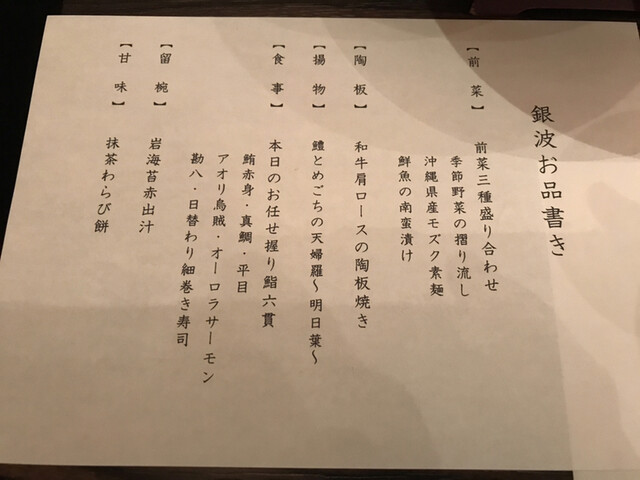 銀波お品書き
【前菜】 前菜三種盛り合わせ
季節野菜の摺り流し
沖縄県産モズク素麺
鮮魚の南蛮漬け
【陶板】 和牛肩ロースの陶板焼き
【揚物】 鱧とめごちの天婦羅～明日葉～
【食事】 本日のお任せ握り鮨六貫
鮪赤身・真鯛・平目
アオリ烏賊・オーロラサーモン
勘八・日替わり細巻き寿司
【留椀】 岩海苔赤出汁
【甘味】 抹茶わらび餅